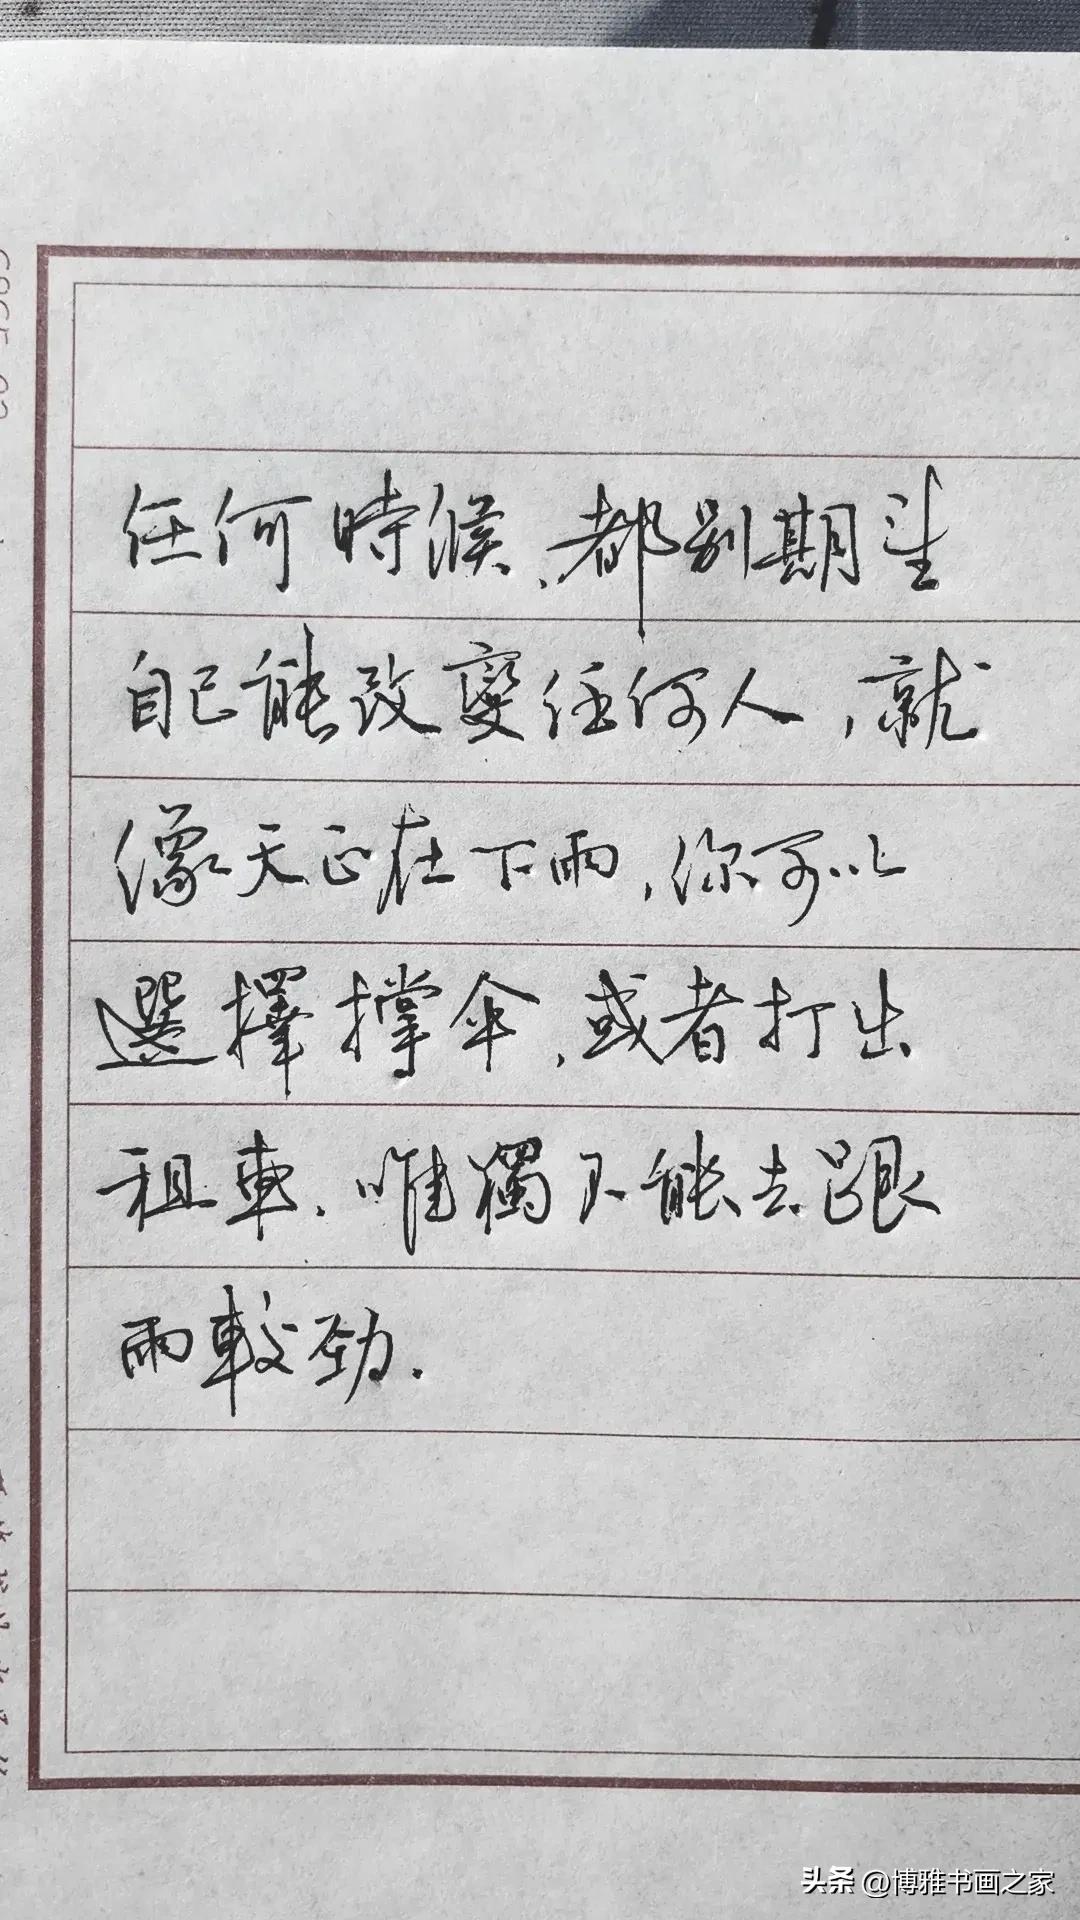 任何時候、都别期望
自己能改變任何人，就
像天正在下雨，你可以
選擇撐傘，或者打出
租車．唯獨不能去跟
雨較勁．
头条 @博雅书画之家